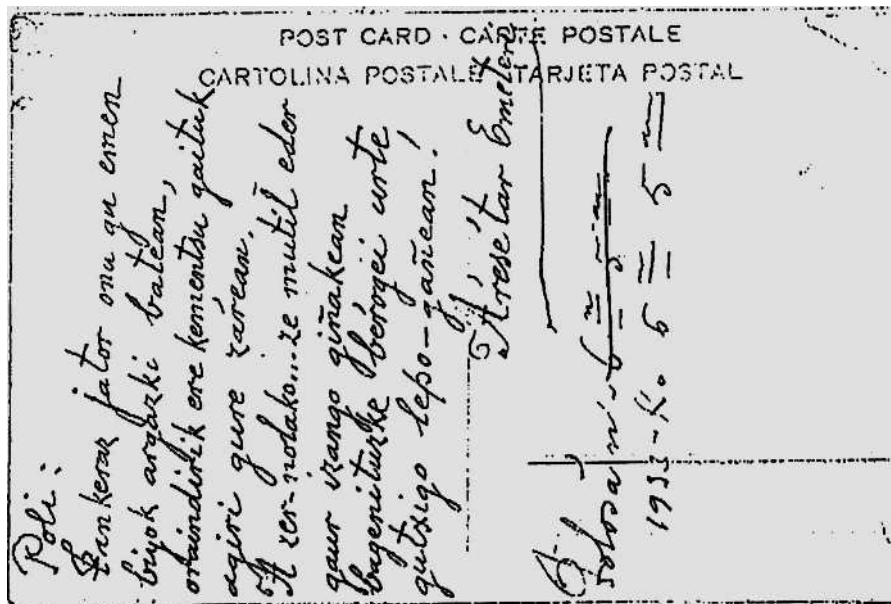 POST CARD · CARTE POSTALE
CARTOLINA POSTALE TARJETA POSTAL
Poli:
Frankerak jator onu gu emen
biyok argazki batean,
oraindirik ere kementsu gaituk
agiri gure zârean.
A zer-nolako... ze mutil eder
gaur izango giñakean
bagenituzke berogei urte,
gutxigo lepo-gañean!
Aresetar Emeter
Tolosan'
1933-K. 6 5